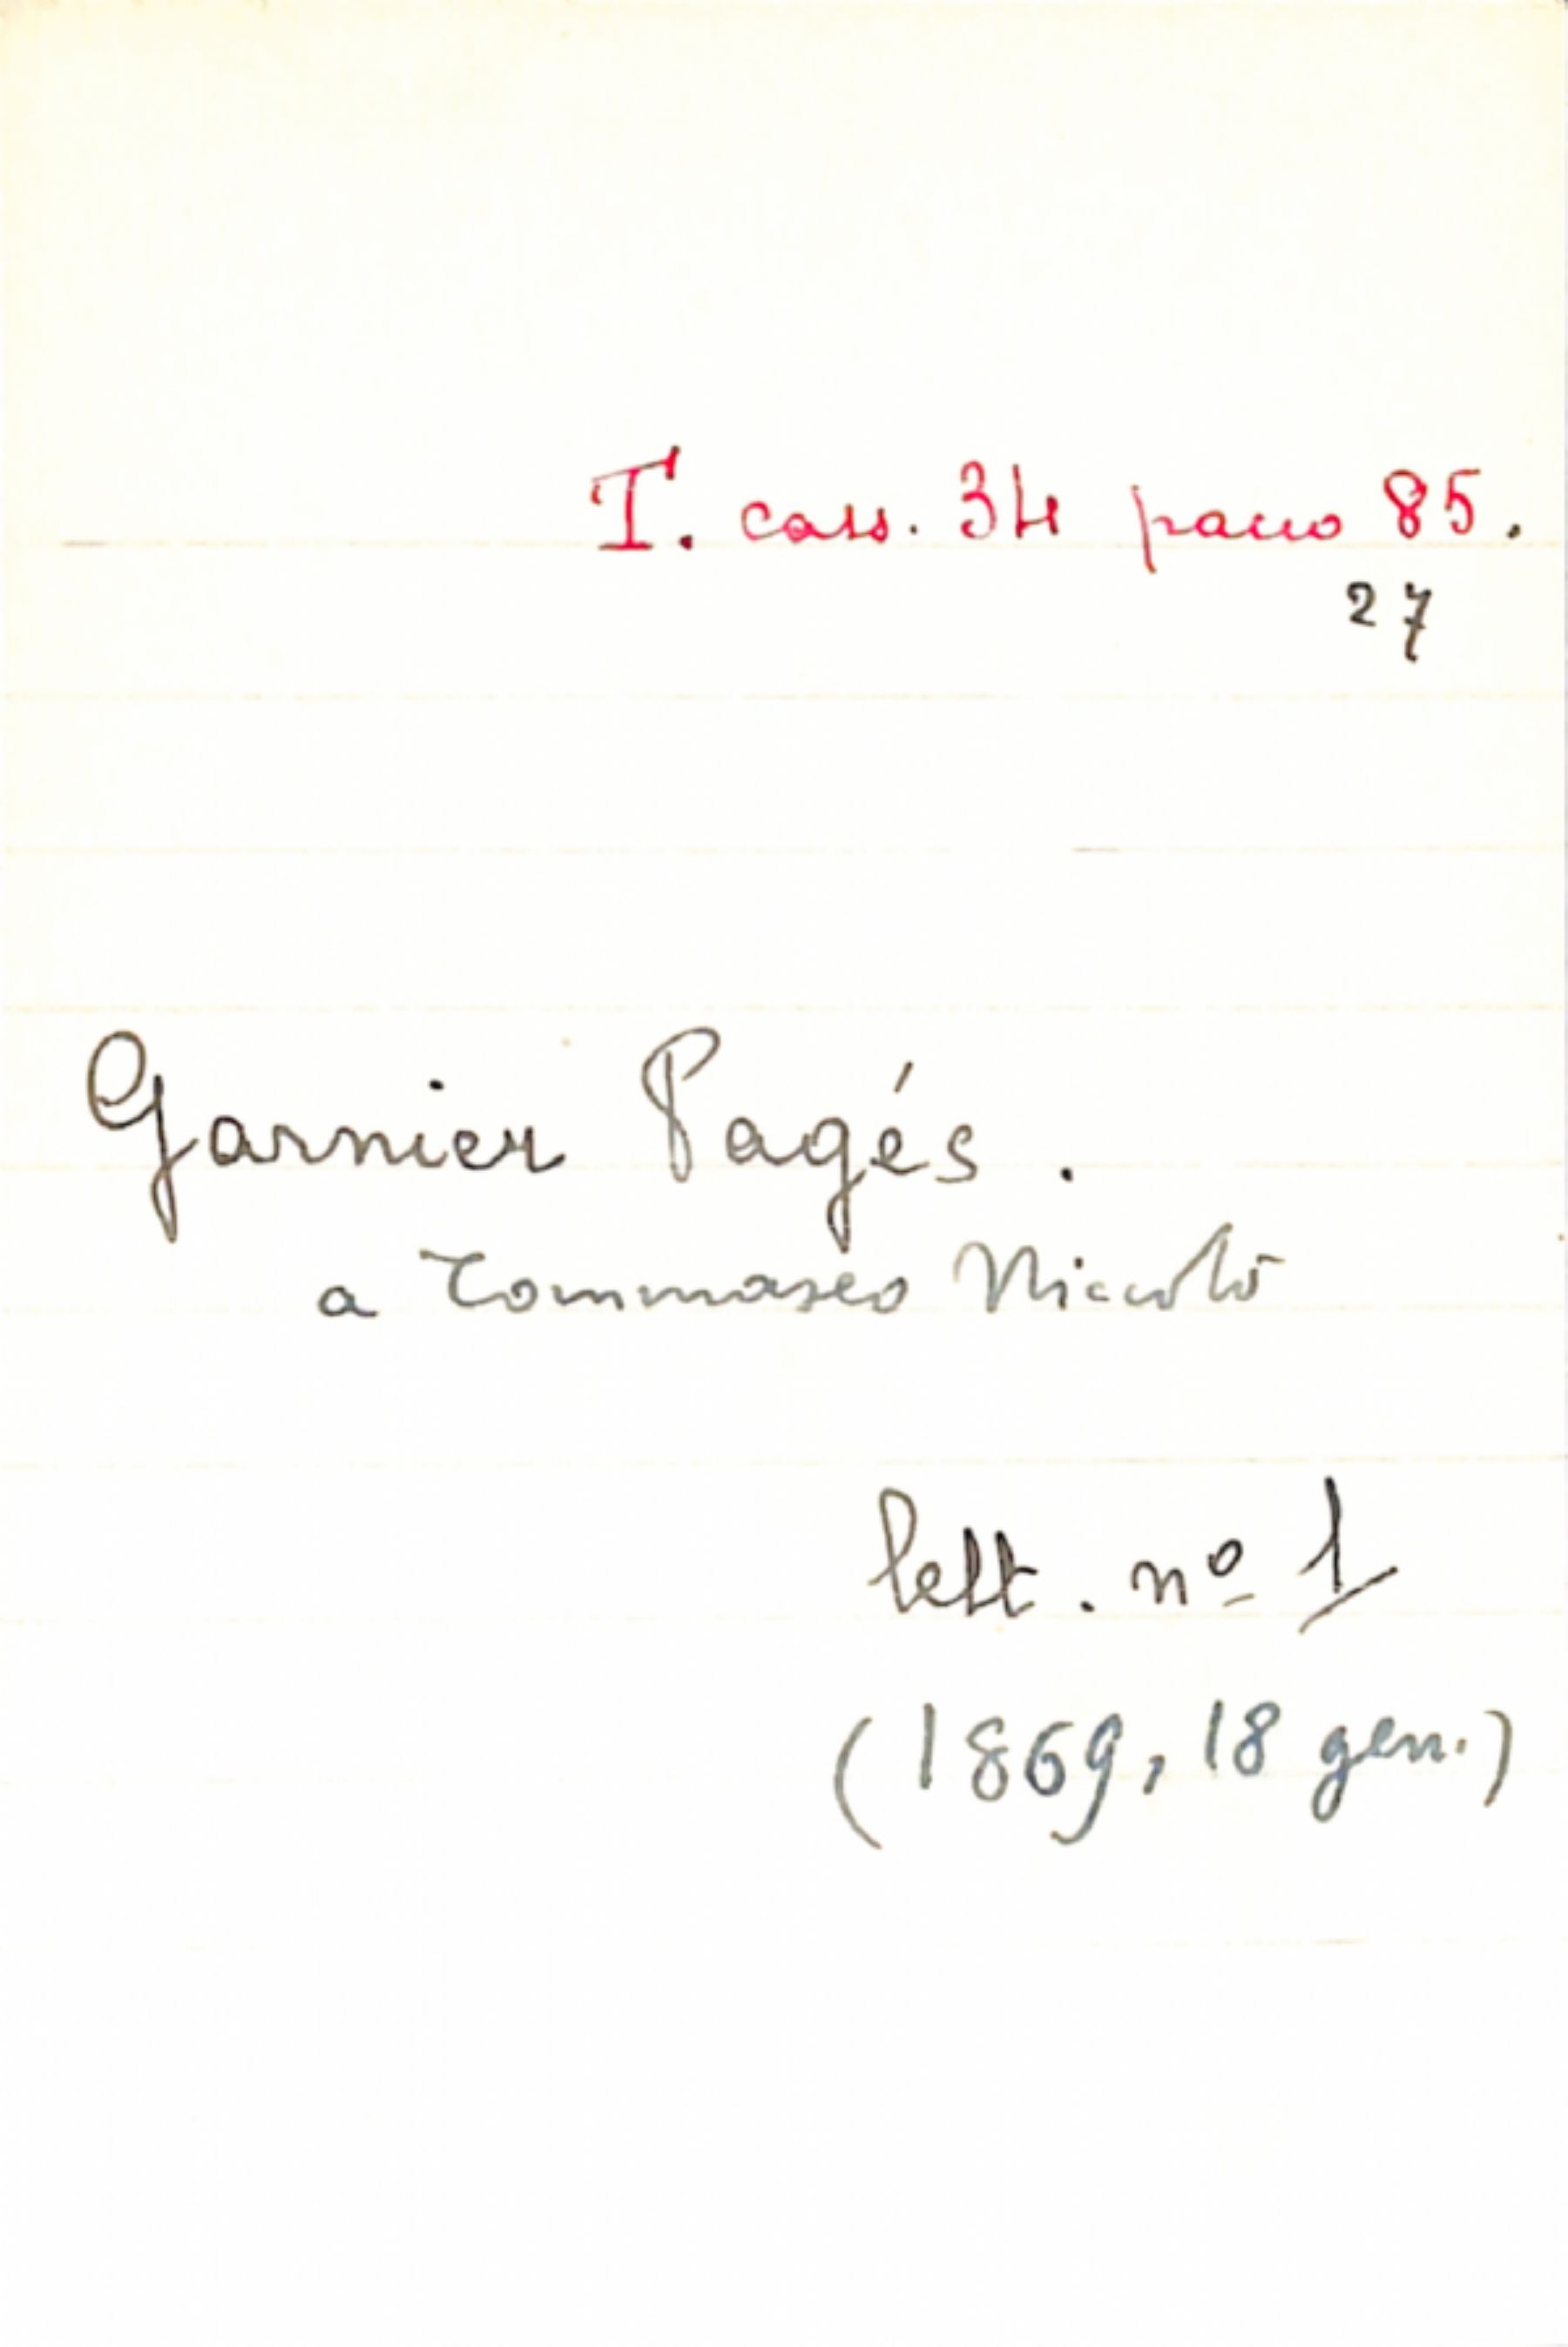 T. cass. 34 pacco 85.
27
Garnier Pagés.
a Tommaseo Niccolò
lett. nº 1
(1869, 18 gen.)